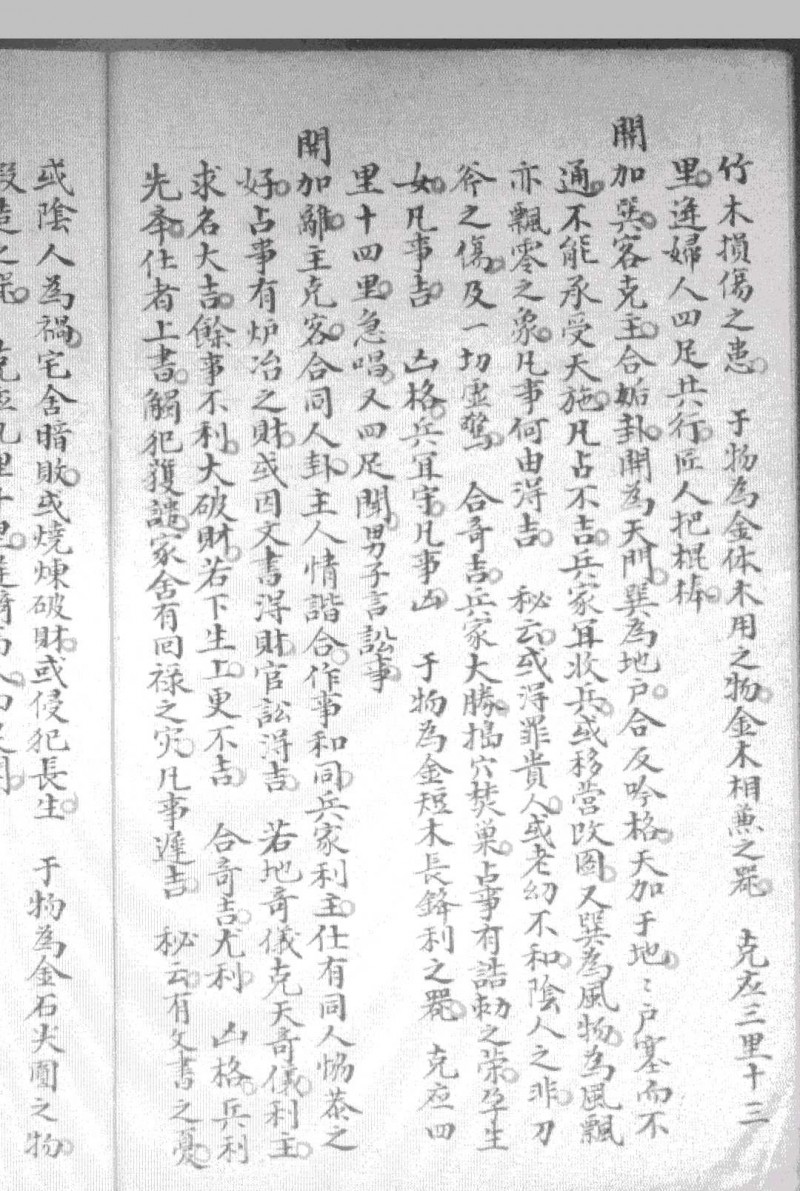 竹木損傷之患　于物為金体木用之物金木相兼之器　克应三里十三
里逢婦人四足共行匠人把棍棒
開加巽客克主合姤卦開為天門巽為地户合反吟格天加于地〻户塞而不
通不能承受天施凡占不吉兵家宜收兵或移营改圖又巽為風物為風飄
亦飄零之象凡事何由淂吉　秘云或淂罪貴人或老幼不和陰人之非刀
斧之傷及一切虚驚　合奇吉兵家大勝搗穴焚巢占事有誥勅之荣孕生
女凡事吉　凶格兵宜守凡事凶　于物為金短木長鋒利之器　克应四
里十四里急唱又四足聞男子言訟事
開加離主克客合同人卦主人情諧合作事和同兵家利主仕有同人恊恭之
好占事有炉冶之財或因文書淂財官訟淂吉　若地奇儀克天奇儀利主
求名大吉餘事不利大破財若下生上更不吉　合奇吉尤利　凶格兵利
先举仕者上書觸犯獲譴家舍有回禄之灾凡事遲吉　秘云有文書之憂
或陰人為禍宅舍暗敗或燒煉破財或侵犯長生　于物為金石尖圓之物